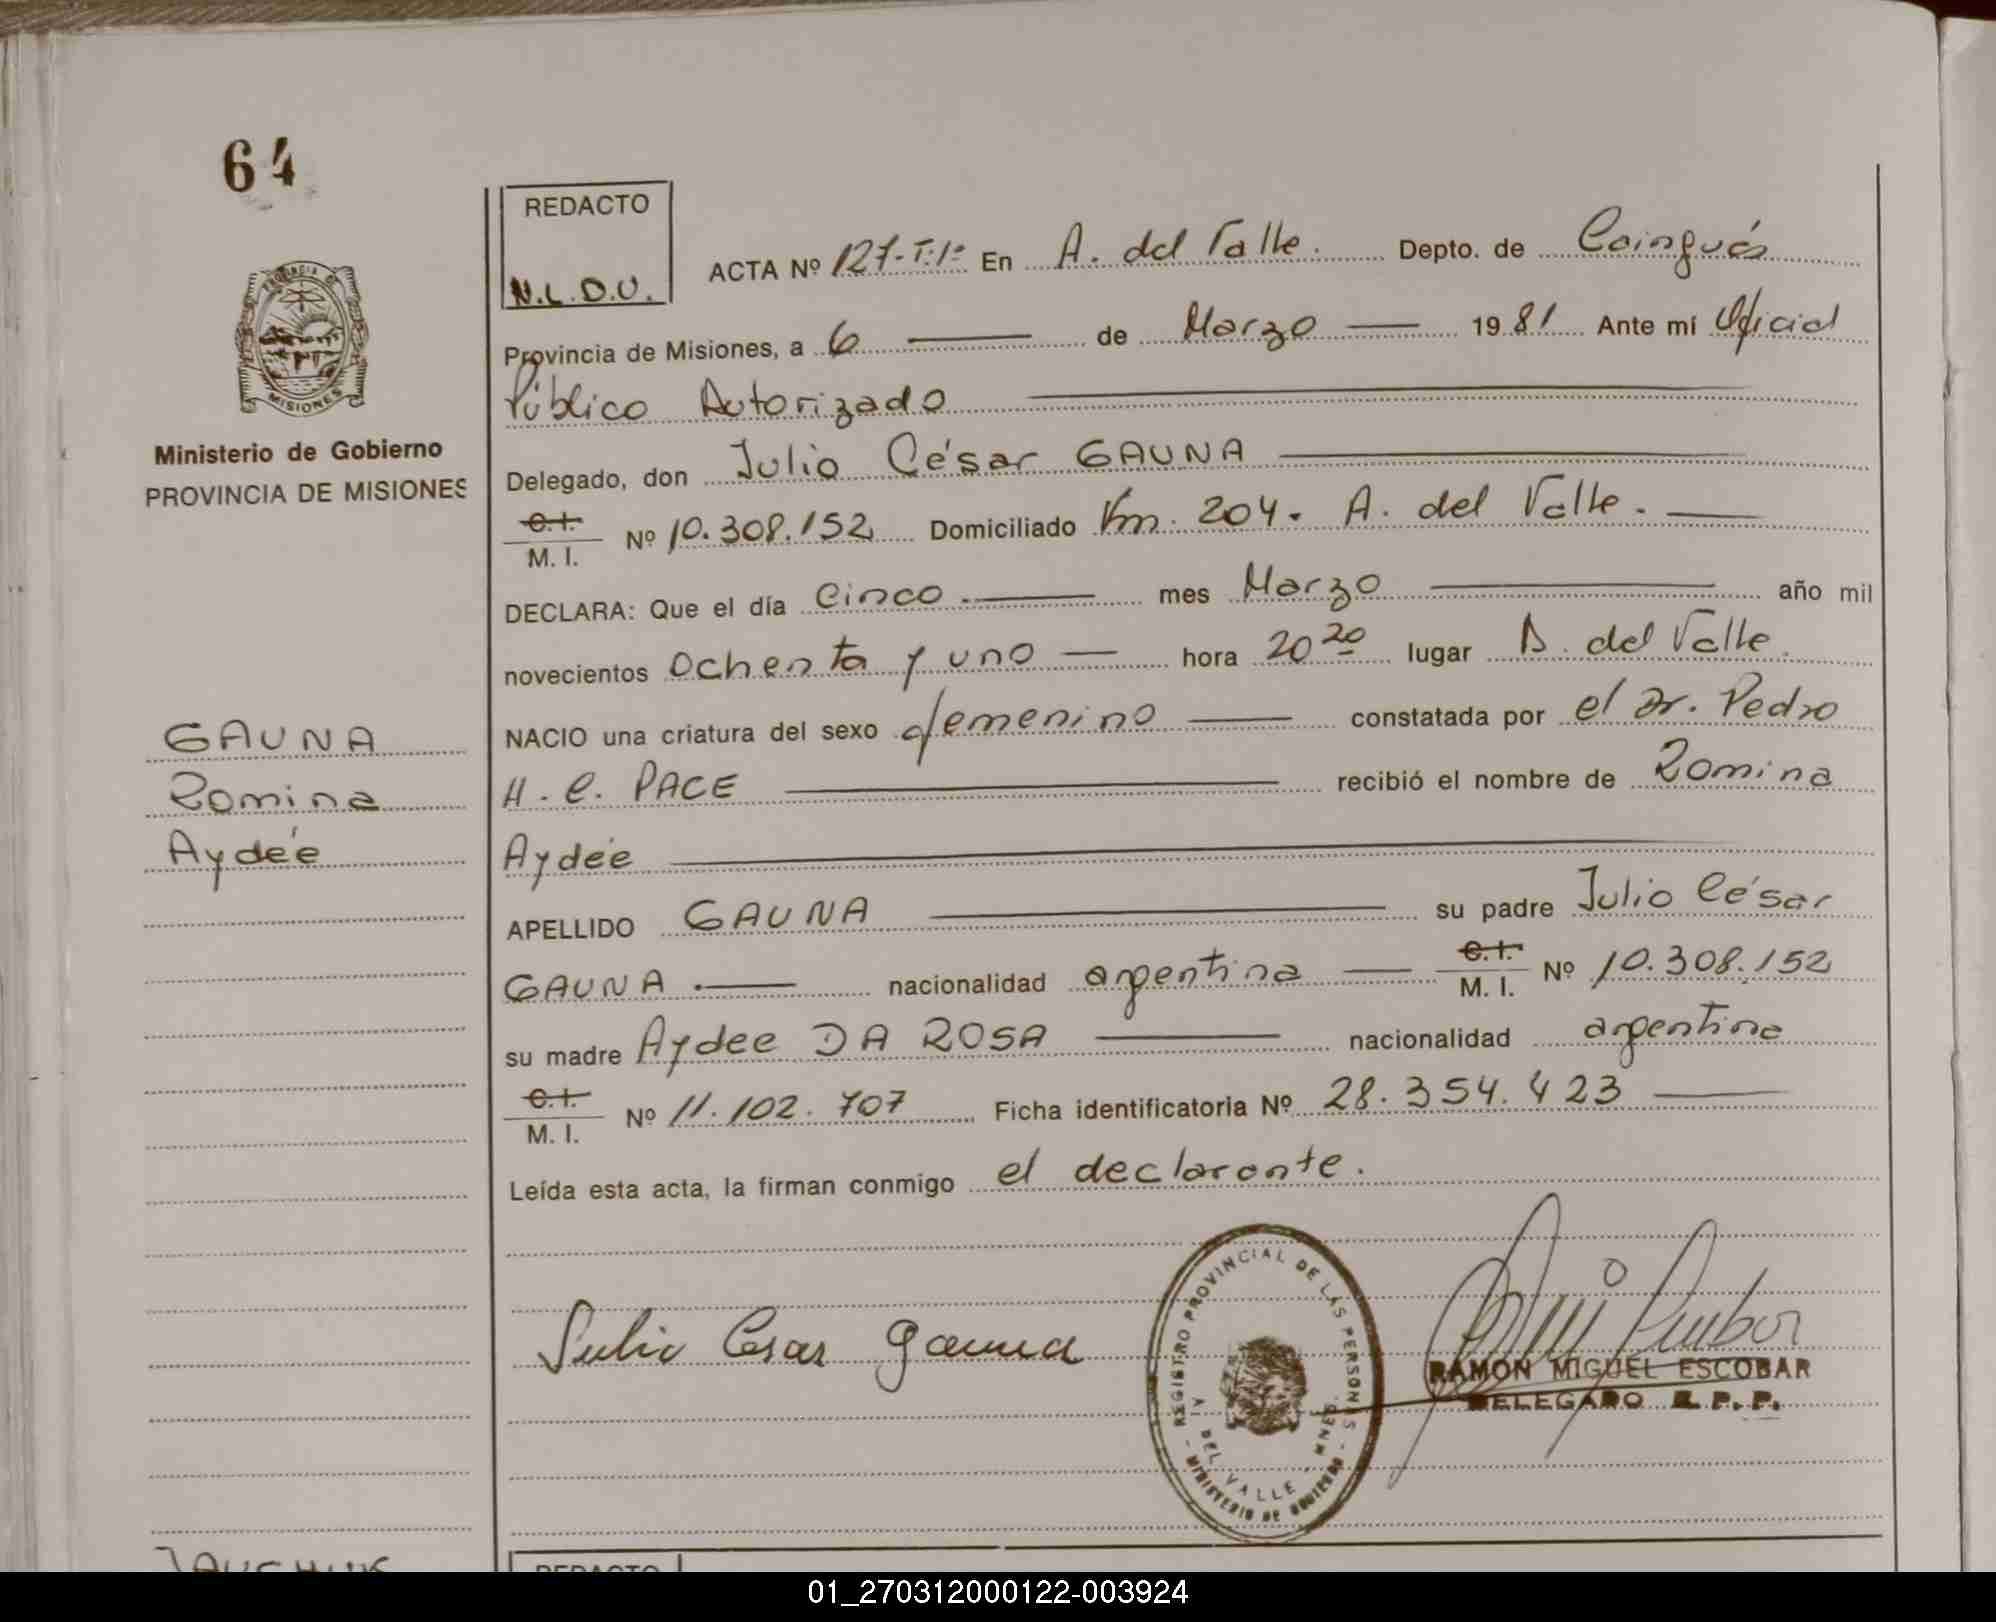 64
REDACTO
N.L.D.U.
PROVINCIA DE
MISIONES
Ministerio de Gobierno
PROVINCIA DE MISIONES
GAUNA
Romina
Aydée
ACTA Nº 127-T:1º En A. del Valle. Depto. de Cainguás
Provincia de Misiones, a 6 de Marzo 1981 Ante mí Oficial
Público Autorizado
Delegado, don Julio César GAUNA
C.I. M. I. Nº 10.308.152 Domiciliado Km. 204. A. del Valle.
DECLARA: Que el día Cinco mes Marzo año mil
novecientos ochenta y uno hora 20 20 lugar A. del Valle.
NACIO una criatura del sexo femenino constatada por el Dr. Pedro
H. C. PACE recibió el nombre de Romina
Aydée
APELLIDO GAUNA su padre Julio César
GAUNA nacionalidad argentina C.I. M. I. Nº 10.308.152
su madre Aydee DA ROSA nacionalidad argentina
C.I. M. I. Nº 11.102.707 Ficha identificatoria Nº 28.354.423
Leída esta acta, la firman conmigo el declarante.
Julio Cesar Gauna
REGISTRO PROVINCIAL DE LAS PERSONAS
MINISTERIO DE GOBIERNO
DEL VALLE MNES.
RAMON MIGUEL ESCOBAR
DELEGADO R.P.P.
REDACTO
01_270312000122-003924